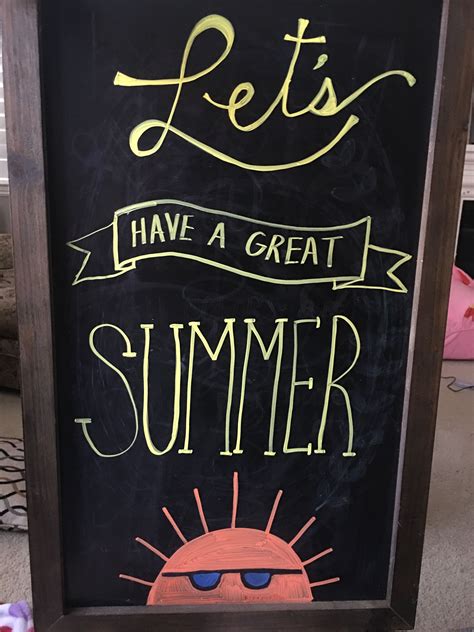 Let's
HAVE A GREAT
SUMMER